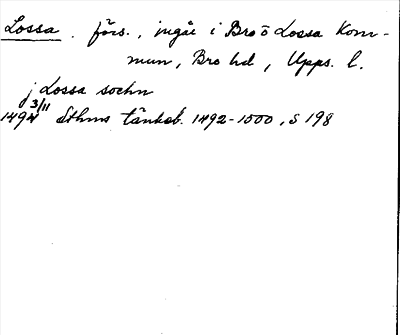 Lossa . förs., ingår i Bro o Lossa kom-
mun, Bro hd, Upps. l.
j Lossa sochn
1494 3/11 Sthms tänkeb. 1492-1500, s 198